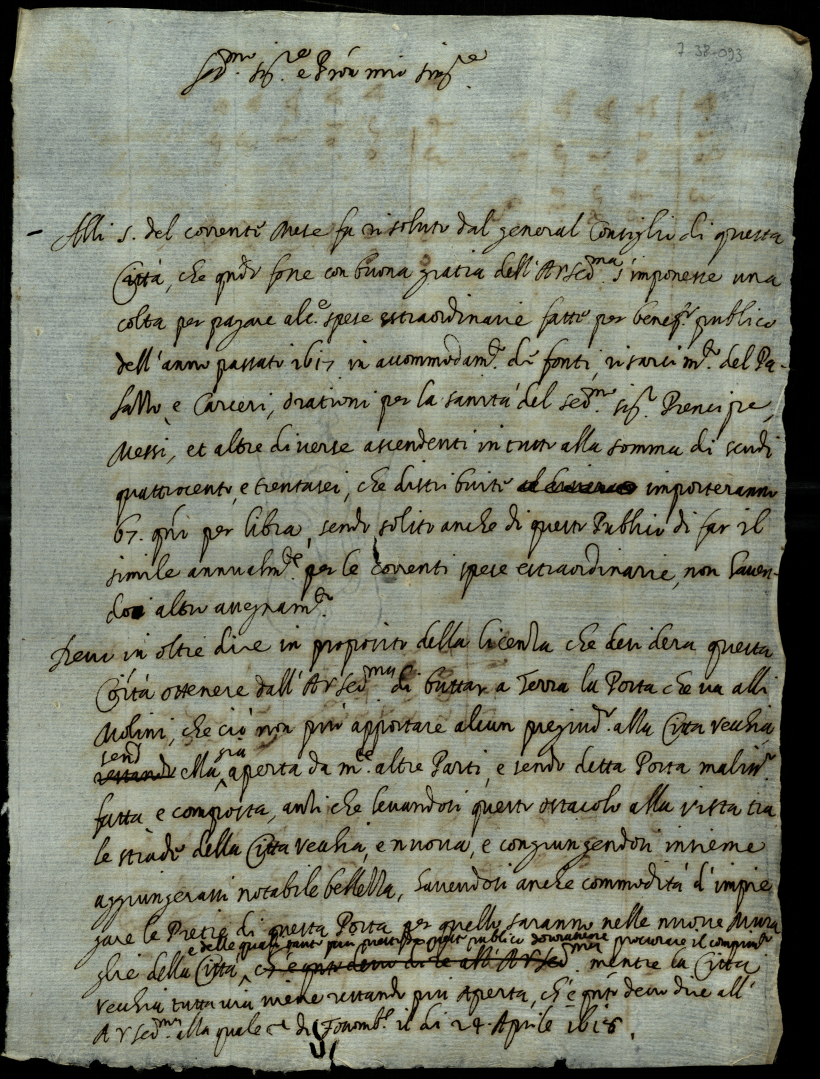 7-38-093
Ser.mo Sig.re e P'ron mio Sing.re
Alli 5. del corrente Mese fu risoluto dal general Consiglio di questa
Città, che q'ndo fosse con buona gratia dell'A V Ser.ma s'imponesse una
colta per pagare alc.e spese estraordinarie fatte per benef.o publico
dell'anno passato 1617 in accommodam.to de fonti, risarcim.to del Pa-
lazzo, e Carceri, orationi per la sanità del Ser.mo Sig.r Prencipe,
Messi, et altre diverse ascendenti in tutto alla somma di scudi
quattrocento, e trentasei, che distribuite importeranno
67. q'ni per libra, sendo solito anche di questo Publico di far il
simile annualm.te per le correnti spese estraordinarie, non haven-
do altro assegnam.to
Devo in oltre dire in proposito della licenza che desidera questa
Città ottenere dall'A V Ser.ma di buttar a Terra la Porta che va alli
Molini, che ciò non può apportare alcun pregiud.o alla Città vecchia,
send
restando ella sia aperta da m.te altre Parti, e sendo detta Porta malis.o
fatta e composta, anzi che levandosi questo ostacolo alla vista tra
le strade della Città vecchia, e nuova, e congiungendosi insieme
aggiungerassi notabile bellezza, havendosi anche commodità d'impie
gare le Pietre di questa Porta per quello saranno nelle nuove Mura
e delle quali tanto più presto questo publico procurare il compim.to
glie della Città, ch'è q'nto devo dire all'A V Ser.ma mentre la Città
vecchia tuttavia viene restando più aperta, ch'è q'nto devo dire all'
A V Ser.ma alla quale etc di il di 24 Aprile 1618.